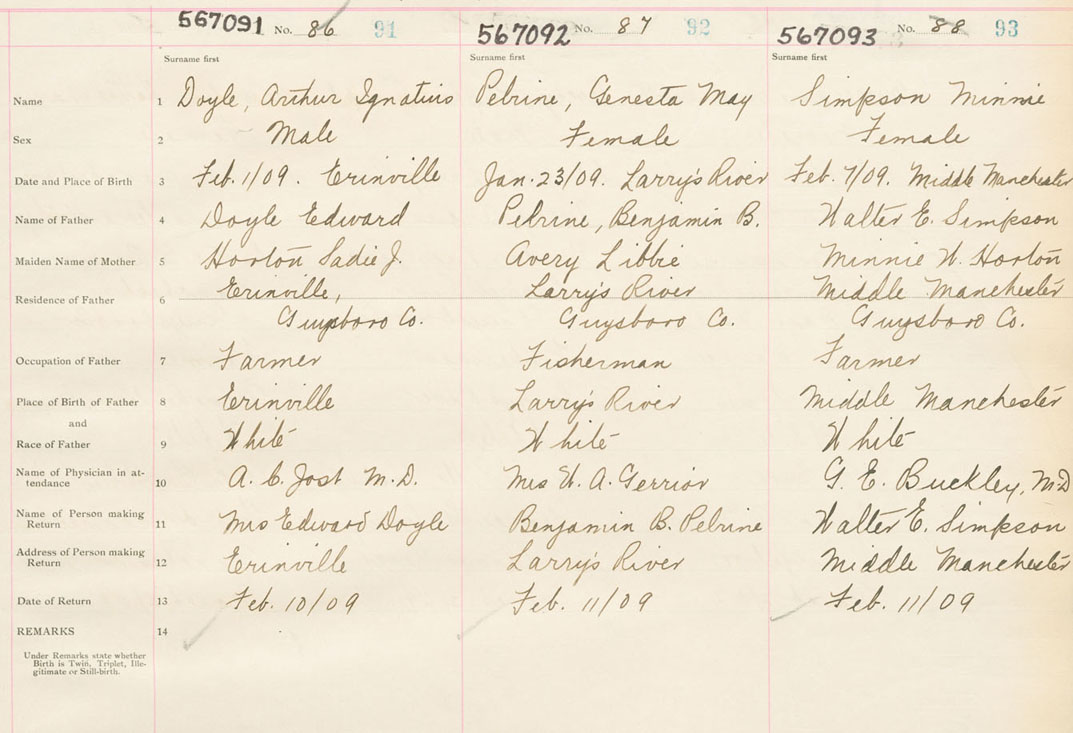 567091 No. 86 91 567092 No. 87 92 567093 No. 88 93
Surname first Surname first Surname first
Name 1 Doyle, Arthur Ignatius Pelrine, Genesta May Simpson Minnie
Sex 2 Male Female Female
Date and Place of Birth 3 Feb. 1/09. Erinville Jan. 23/09. Larry's River Feb. 7/09. Middle Manchester
Name of Father 4 Doyle Edward Pelrine, Benjamin B. Walter E. Simpson
Maiden Name of Mother 5 Horton Sadie J. Avery Libbie Minnie W. Horton
Residence of Father 6 Erinville, Larry's River Middle Manchester
Guysboro Co. Guysboro Co. Guysboro Co.
Occupation of Father 7 Farmer Fisherman Farmer
Place of Birth of Father 8 Erinville Larry's River Middle Manchester
and
Race of Father 9 White White White
Name of Physician in at-
tendance 10 A. C. Jost M.D. Mrs W. A. Gerrior G. E. Buckley, M.D
Name of Person making
Return 11 Mrs Edward Doyle Benjamin B. Pelrine Walter E. Simpson
Address of Person making
Return 12 Erinville Larry's River Middle Manchester
Date of Return 13 Feb. 10/09 Feb. 11/09 Feb. 11/09
REMARKS 14
Under Remarks state whether
Birth is Twin, Triplet, Ille-
gitimate or Still-birth.